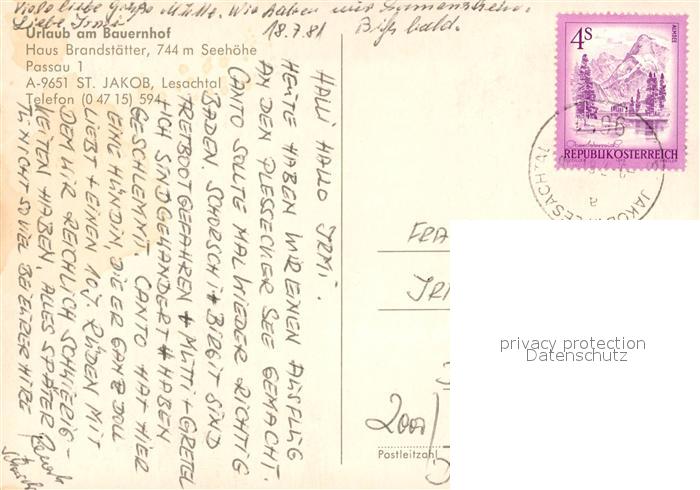 Viele liebe Grüße M.+M. Wir haben nur
Liebe Irmi! 18.7.81 Bis bald.
Urlaub am Bauernhof
Haus Brandstätter, 744 m Seehöhe
Passau 1
A-9651 ST. JAKOB, Lesachtal
Telefon (0 47 15) 594
HALLI HALLO IRMI.
HEUTE HABEN WIR EINEN AUSFLUG
AN DEN PLESSECKER SEE GEMACHT.
CANTO SOLLTE MAL WIEDER RICHTIG
BADEN. SCHORSCHI + BIRGIT SIND
TRETBOOTGEFAHREN + MUTTI + GRETEL
+ ICH SIND GEWANDERT + HABEN
GESCHLEMMT. CANTO HAT HIER
EINE HÜNDIN, DIE ER GANZ DOLL
LIEBT + EINEN 10 J. RÜDEN MIT
DEM WIR REICHLICH SCHWIERIG-
KEITEN HABEN. ALLES SPÄTER
TU NICHT SO VIEL BEI EURER HITZE
4S
ALMSEE
Oberösterreich
REPUBLIK ÖSTERREICH
ST. JAKOB I. LESACHTAL
9651
a
FRA
IR
2000
Postleitzahl
privacy protection
Datenschutz